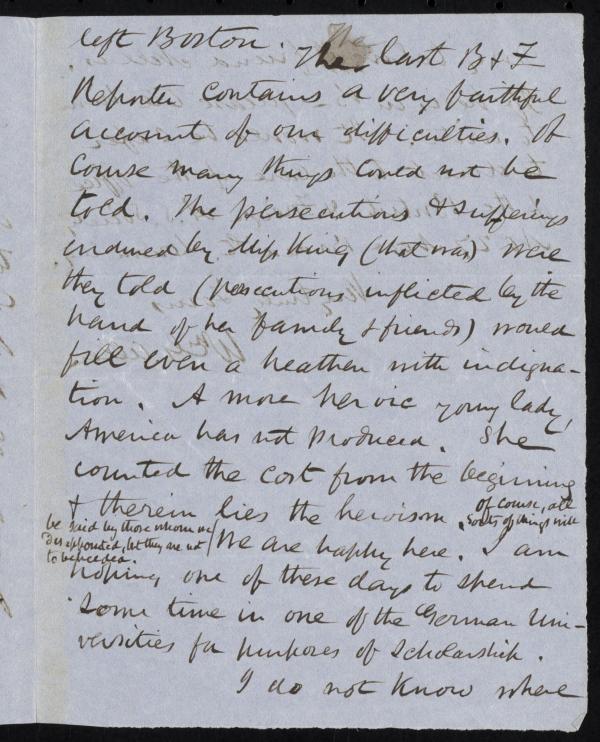 left Boston. The last B & F
Reporter contains a very faithful
account of our difficulties. Of
course many things could not be
told. The persecutions & sufferings
endured by Miss King (that was) were
they told (persecutions inflicted by the
hand of her family & friends) would
fill even a heathen with indigna-
tion. A more heroic young lady,
America has not produced. She
counted the cost from the beginning
& therein lies the heroism. of course, all
sorts of things will
be said by those whom we
disappointed, but they are not
to be heeded.
We are happy here. I am
hoping, one of these days to spend
some time in one of the German Uni-
versities for purposes of scholarship.
I do not know where